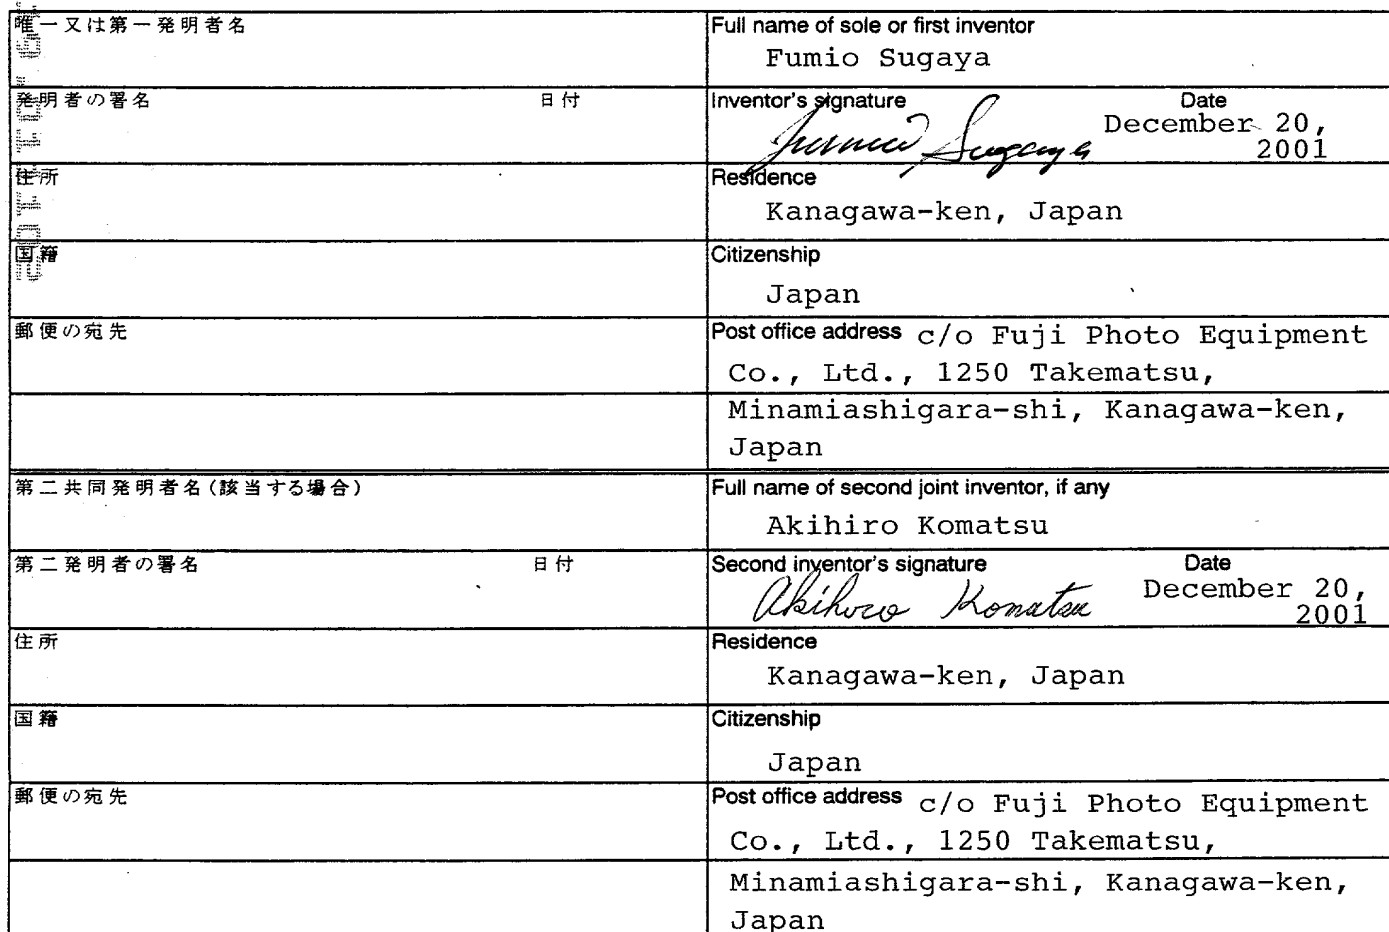 唯一又は第一発明者名
Full name of sole or first inventor
Fumio Sugaya
発明者の署名 日付
Inventor's signature Date
Fumio Sugaya December 20,
2001
住所
Residence
Kanagawa-ken, Japan
国籍
Citizenship
Japan
郵便の宛先
Post office address c/o Fuji Photo Equipment
Co., Ltd., 1250 Takematsu,
Minamiashigara-shi, Kanagawa-ken,
Japan
第二共同発明者名(該当する場合)
Full name of second joint inventor, if any
Akihiro Komatsu
第二発明者の署名 日付
Second inventor's signature Date
Akihiro Komatsu December 20,
2001
住所
Residence
Kanagawa-ken, Japan
国籍
Citizenship
Japan
郵便の宛先
Post office address c/o Fuji Photo Equipment
Co., Ltd., 1250 Takematsu,
Minamiashigara-shi, Kanagawa-ken,
Japan